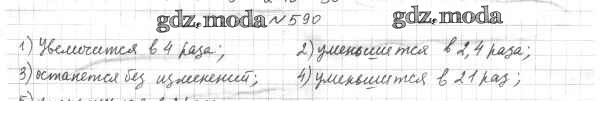 gdz.moda №590 gdz.moda
1) Увеличится в 4 раза; 2) уменьшится в 2,4 раза;
3) останется без изменений; 4) уменьшится в 21 раз;